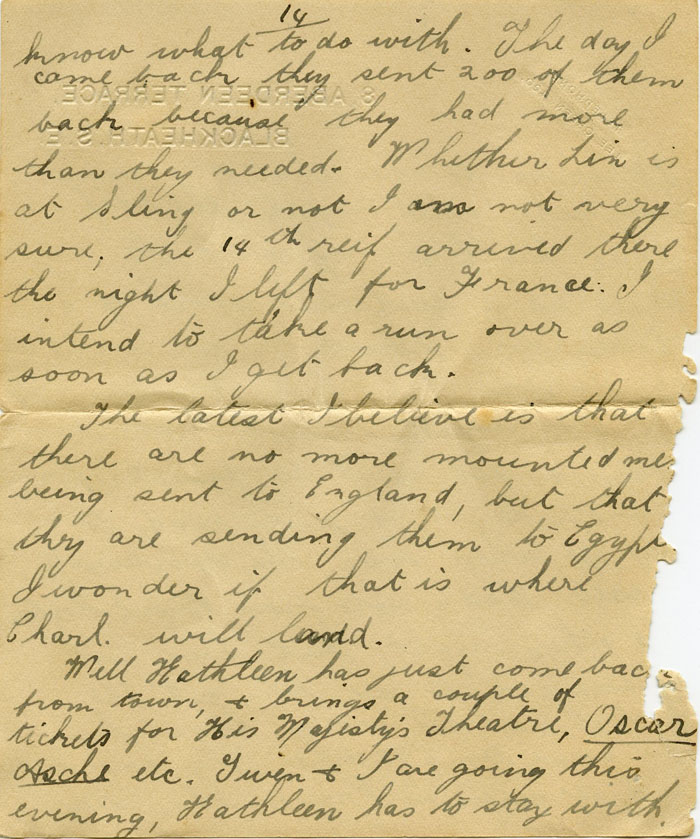 14
know what to do with. The day I
came back they sent 200 of them
back because they had more
than they needed. Whether Lin is
at Sling or not I am not very
sure, the 14th reif arrived there
the night I left for France. I
intend to take a run over as
soon as I get back.
The latest I believe is that
there are no more mounted me
being sent to England, but that
they are sending them to Egypt
I wonder if that is where
Charl. will land.
Well Kathleen has just come back
from town, & brings a couple of
tickets for His Majesty's Theatre, Oscar
Asche etc. Gwen & I are going this
evening, Kathleen has to stay with
8 ABERDEEN TERRACE,
BLACKHEATH. S.E.